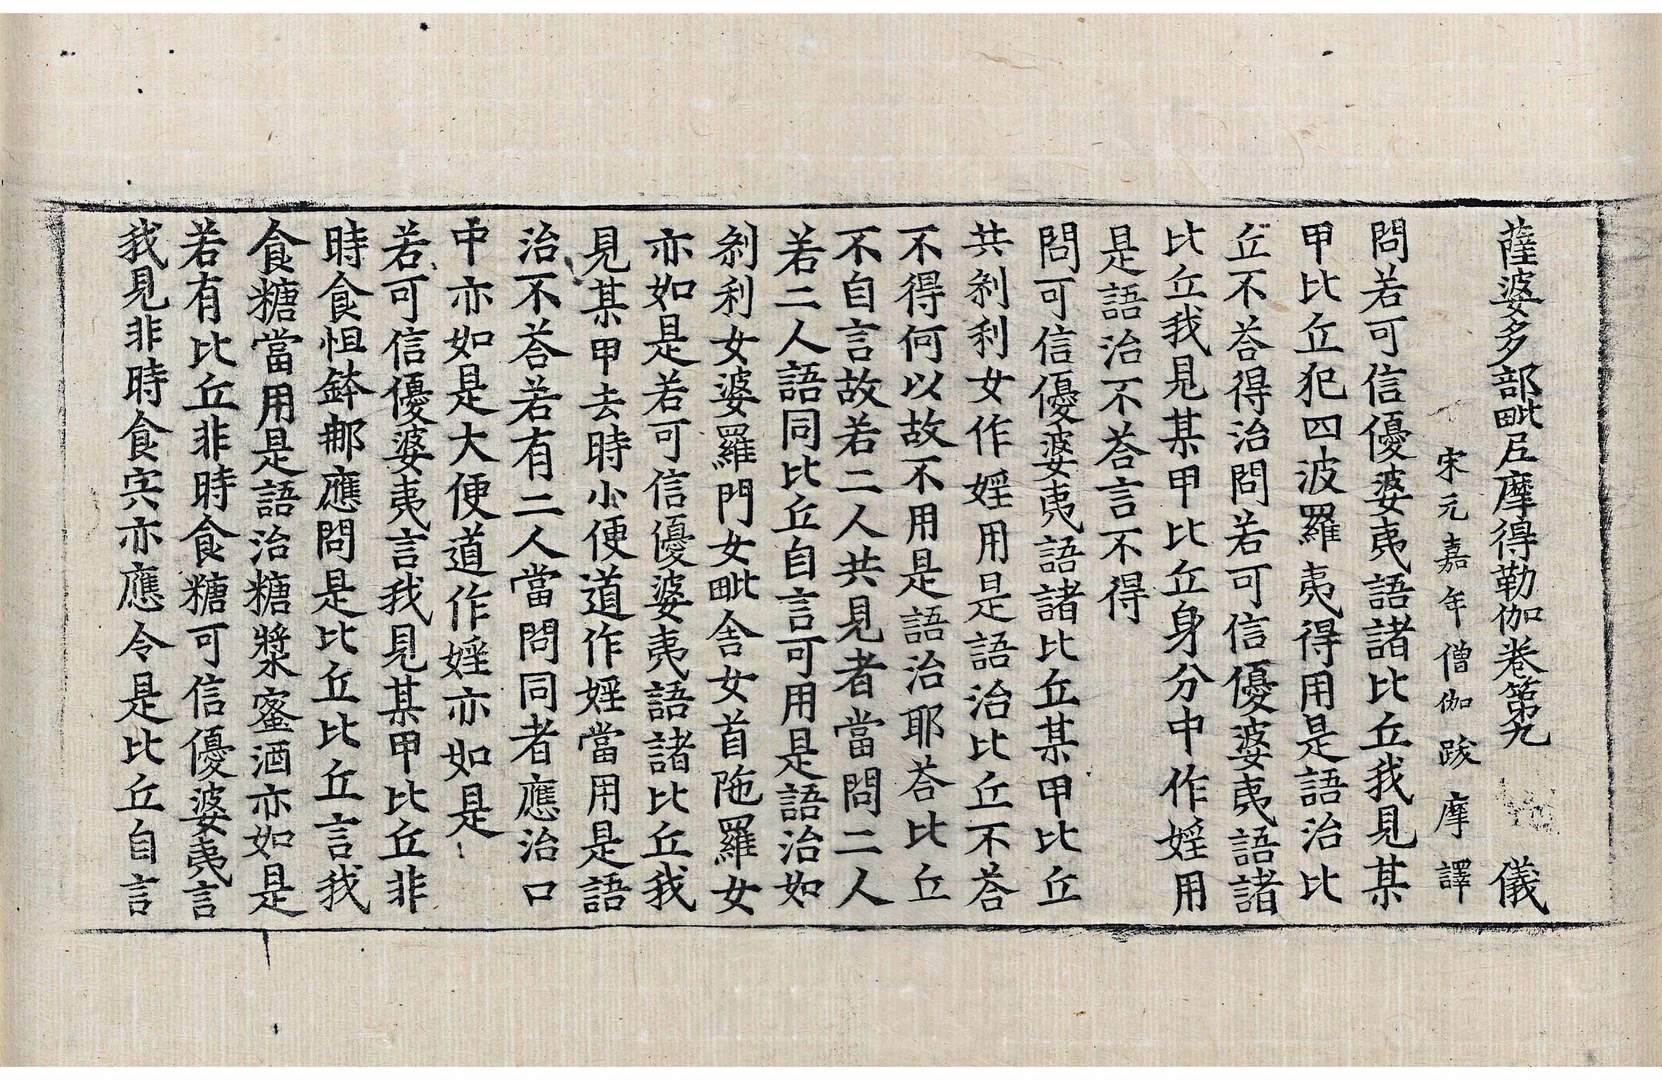 薩婆多部毗尼摩得勒伽卷第九　儀
宋元嘉年僧伽跋摩譯
問若可信優婆夷語諸比丘我見某
甲比丘犯四波羅夷得用是語治比
丘不荅得治問若可信優婆夷語諸
比丘我見某甲比丘身分中作婬用
是語治不荅言不得
問可信優婆夷語諸比丘某甲比丘
共刹利女作婬用是語治比丘不荅
不得何以故不用是語治耶荅比丘
不自言故若二人共見者當問二人
若二人語同比丘自言可用是語治如
刹利女婆羅門女毗舍女首陁羅女
亦如是若可信優婆夷語諸比丘我
見某甲去時小便道作婬當用是語
治不荅若有二人當問同者應治口
中亦如是大便道作婬亦如是
若可信優婆夷言我見某甲比丘非
時食怛鉢郍應問是比丘比丘言我
食糖當用是語治糖漿蜜酒亦如是
若有比丘非時食糖可信優婆夷言
我見非時食宍亦應令是比丘自言